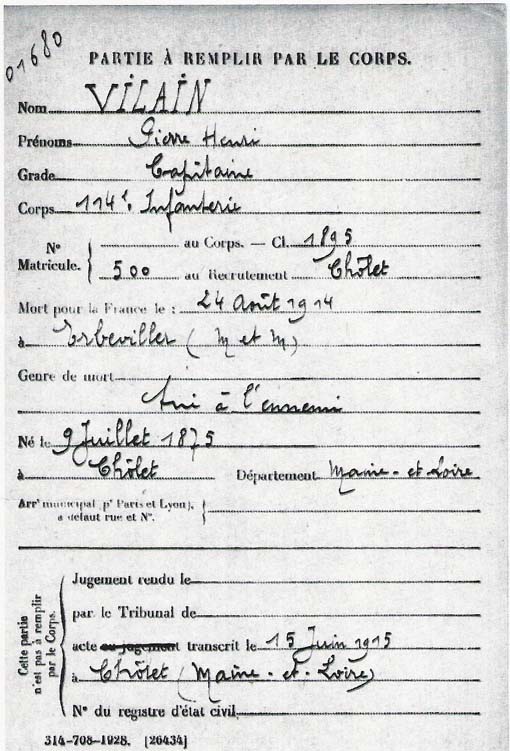 01680
PARTIE À REMPLIR PAR LE CORPS.
Nom VILAIN
Prénoms Pierre Henri
Grade Capitaine
Corps 114e Infanterie
N° Matricule. au Corps. — Cl. 1895
500 au Recrutement Chôlet
Mort pour la France le : 24 Août 1914
à Erbeviller (M et M)
Genre de mort
Tué à l'ennemi
Né le 9 Juillet 1875
à Chôlet Département Maine-et-Loire
Arrt municipal (pr Paris et Lyon), à défaut rue et N°.
Cette partie n'est pas à remplir par le Corps.
Jugement rendu le
par le Tribunal de
acte ou jugement transcrit le 15 Juin 1915
à Chôlet (Maine-et-Loire)
N° du registre d'état civil
314-708-1928. [26434]